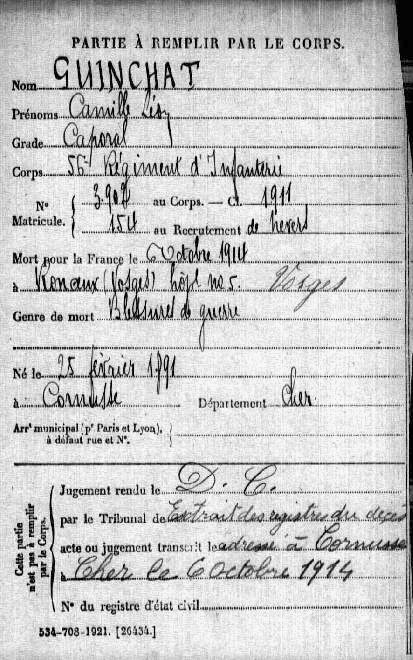 PARTIE À REMPLIR PAR LE CORPS.
Nom GUINCHAT
Prénoms Camille
Grade Caporal
Corps 56e Régiment d'Infanterie
N° Matricule. { 3902 au Corps. — Cl. 1911
154 au Recrutement de Nevers
Mort pour la France le 6 Octobre 1914
à (Vosges) hôpl no 5. Vosges
Genre de mort Blessures de guerre
Né le 25 février 1891
à Cornusse Département Cher
Arrt municipal (pr Paris et Lyon),
à défaut rue et N°.
Cette partie n'est pas à remplir par le Corps.
Jugement rendu le D. C.
par le Tribunal de Extrait des registres du décès
acte ou jugement transcrit le adressé à Cornusse
à Cher le 6 Octobre 1914
N° du registre d'état civil
534-708-1921. [26434.]